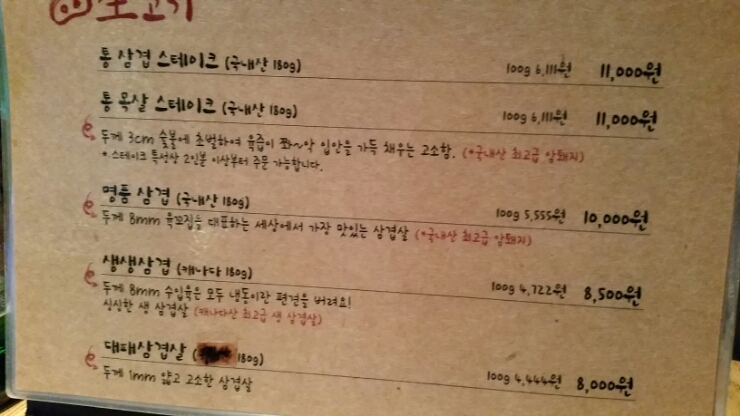 통 삼겹 스테이크 (국내산 180g) 100g 6,111원 11,000원
통 목살 스테이크 (국내산 180g) 100g 6,111원 11,000원
두께 3cm 숯불에 초벌하여 육즙이 쫘~악 입안을 가득 채우는 고소함. (*국내산 최고급 암퇘지)
* 스테이크 특성상 2인분 이상부터 주문 가능합니다.
명품 삼겹 (국내산 180g) 100g 5,555원 10,000원
두께 8mm 육꼬집을 대표하는 세상에서 가장 맛있는 삼겹살 (*국내산 최고급 암퇘지)
생생삼겹 (캐나다 180g) 100g 4,722원 8,500원
두께 8mm 수입육은 모두 냉동이란 편견을 버려요!
싱싱한 생 삼겹살 (캐나다산 최고급 생 삼겹살)
대패삼겹살 ( 180g) 100g 4,444원 8,000원
두께 1mm 얇고 고소한 삼겹살